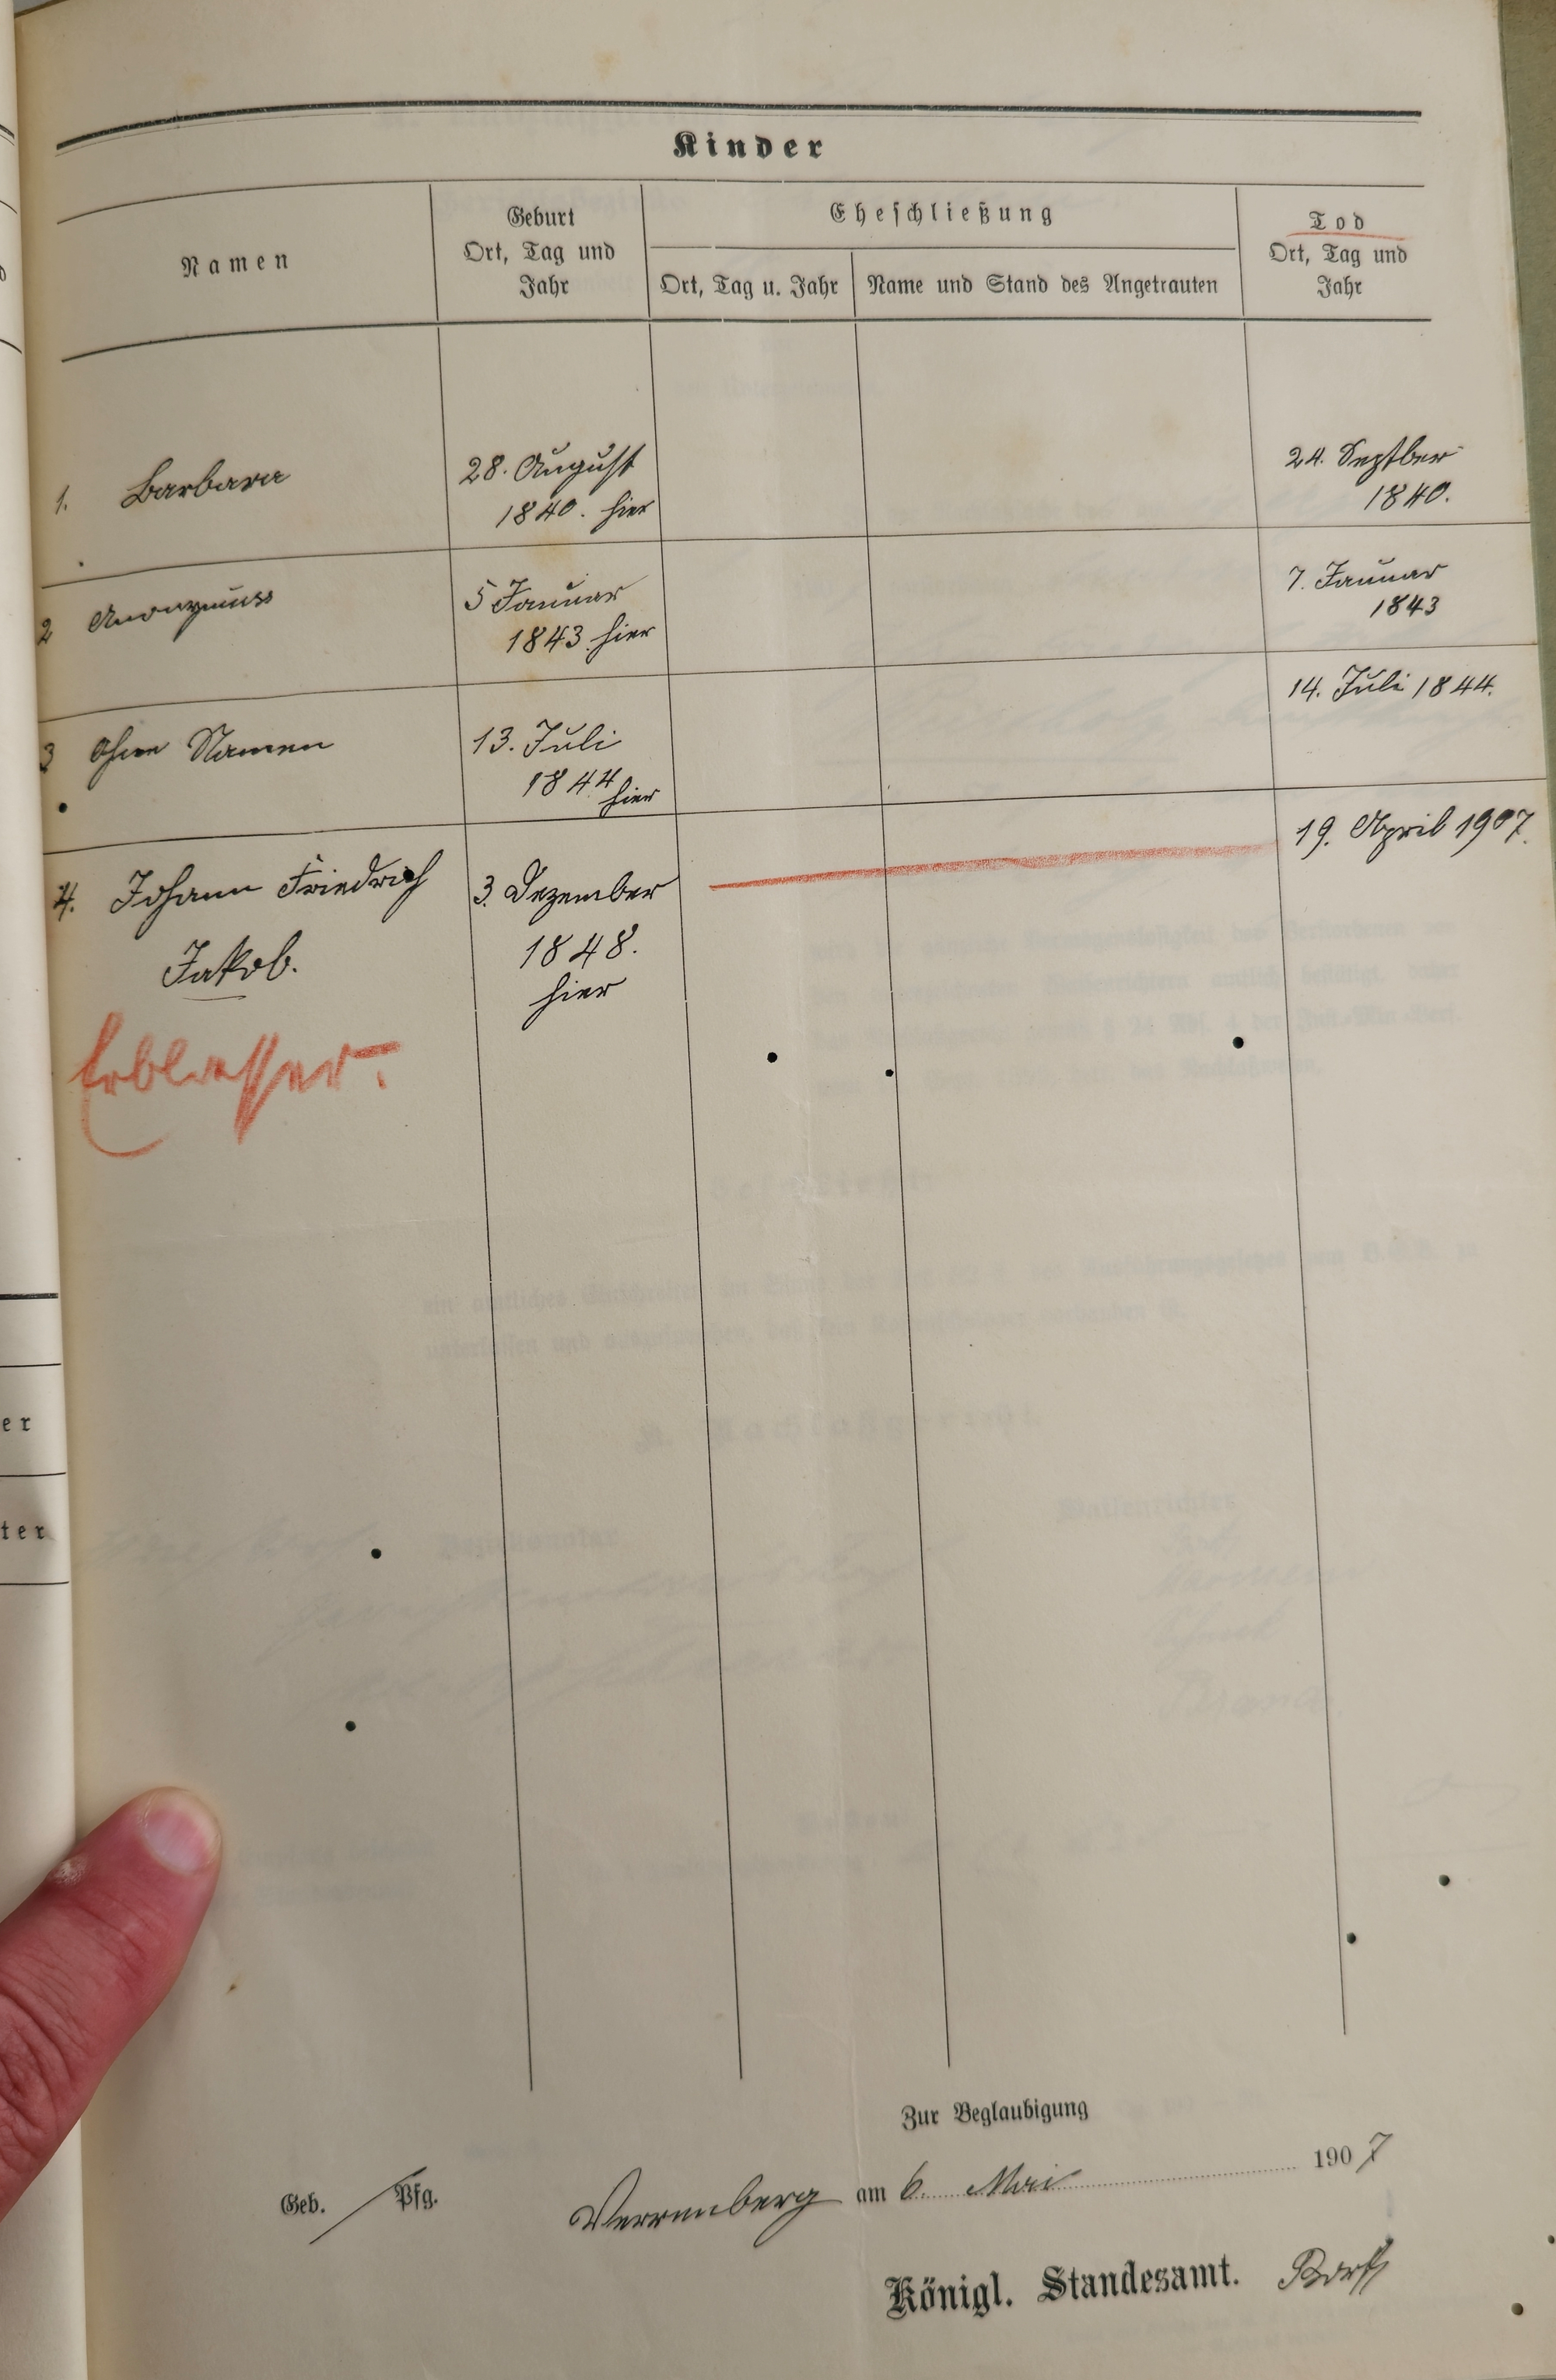 Kinder
Namen
Geburt
Ort, Tag und
Jahr
Eheschließung
Ort, Tag u. Jahr
Name und Stand des Angetrauten
Tod
Ort, Tag und
Jahr
1. Barbara
28. August
1840. hier
24. Septber
1840.
2 Anonymus
5 Januar
1843. hier
7. Januar
1843
3 Ohne Namen
13. Juli
1844 hier
14. Juli 1844.
4. Johann Friedrich
Jakob.
3. Dezember
1848.
hier
19. April 1907.
Erblasser.
er
ter
Zur Beglaubigung
Geb. / Pfg.
Verrenberg am 6. Mai 1907
Königl. Standesamt.